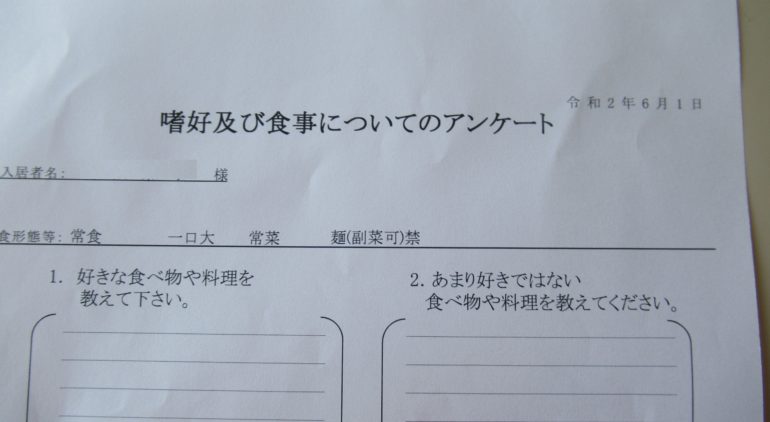 令和2年6月1日
嗜好及び食事についてのアンケート
入居者名: 様
食形態等: 常食 一口大 常菜 麺(副菜可)禁
1. 好きな食べ物や料理を
教えて下さい。
2. あまり好きではない
食べ物や料理を教えてください。